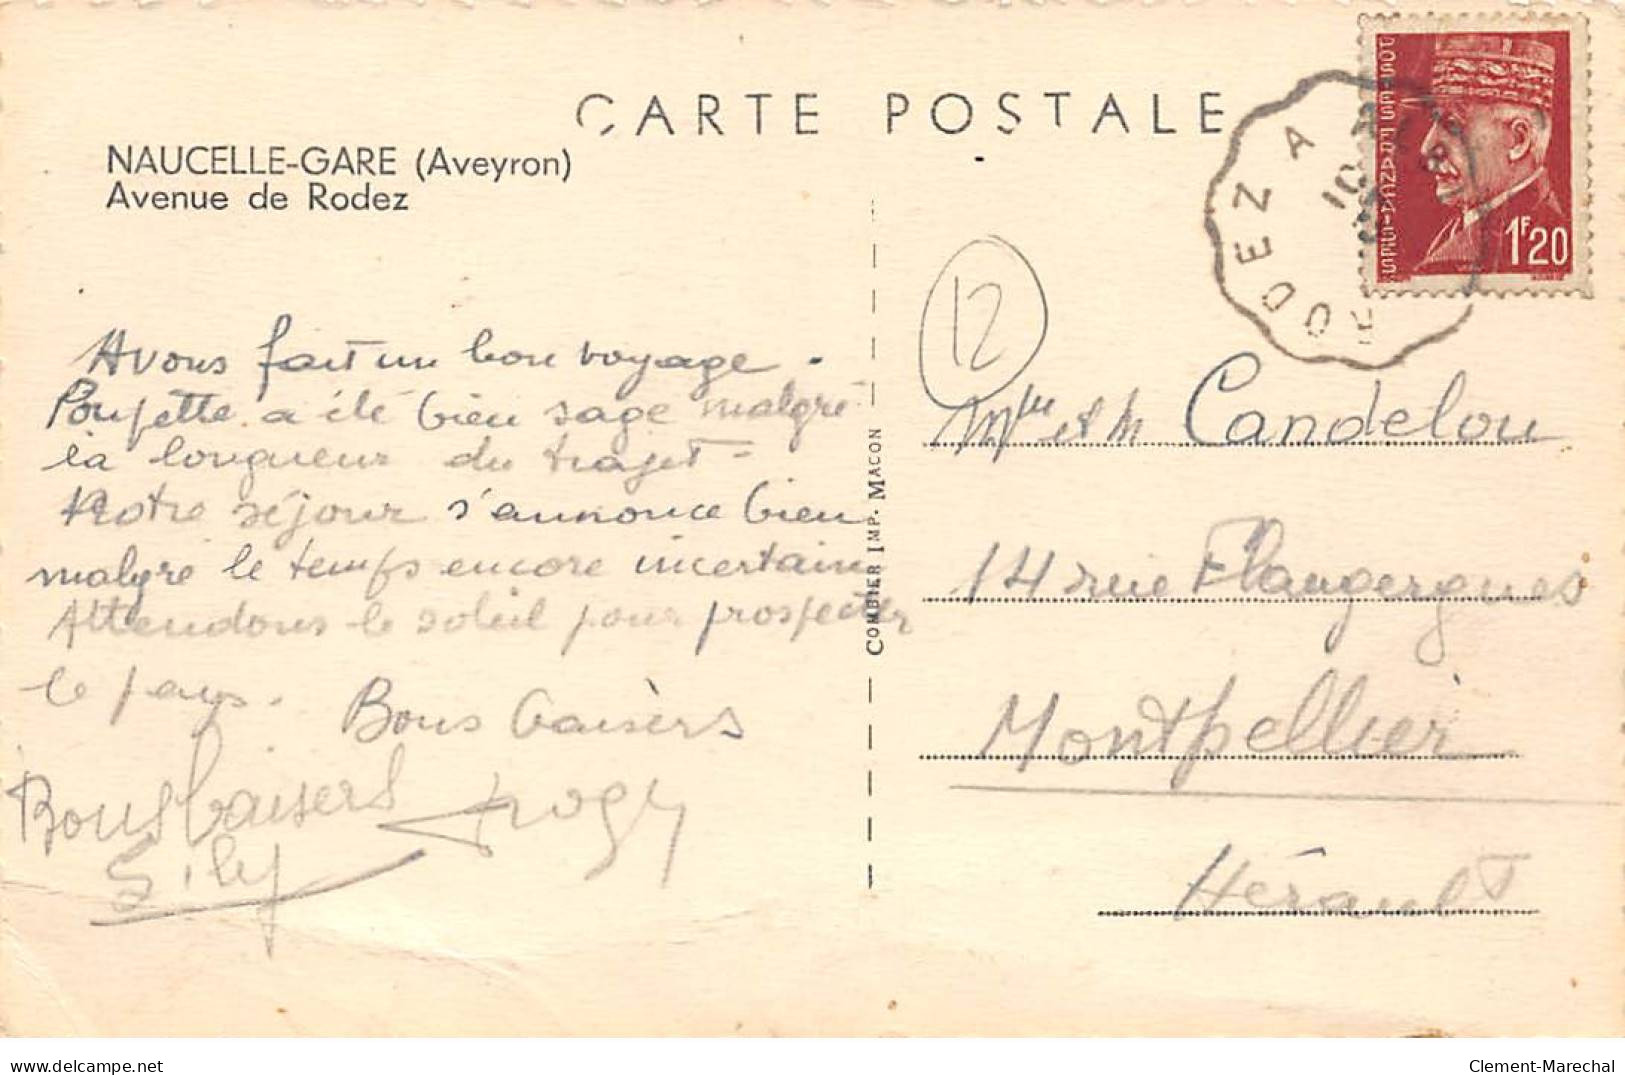 CARTE POSTALE
NAUCELLE-GARE (Aveyron)
Avenue de Rodez
POSTES FRANÇAISES
1F20
RODEZ A
10
12
Avons fait un bon voyage.
Poupette a été bien sage malgré
la longueur du trajet -
Notre séjour s'annonce bien
malgré le temps encore incertain
Attendons le soleil pour prospecter
le pays. Bons baisers
Bons baisers
COMBIER IMP. MACON
et M Candelou
14 rue Flaugergues
Montpellier
Hérault
delcampe.net
Clement-Marechal